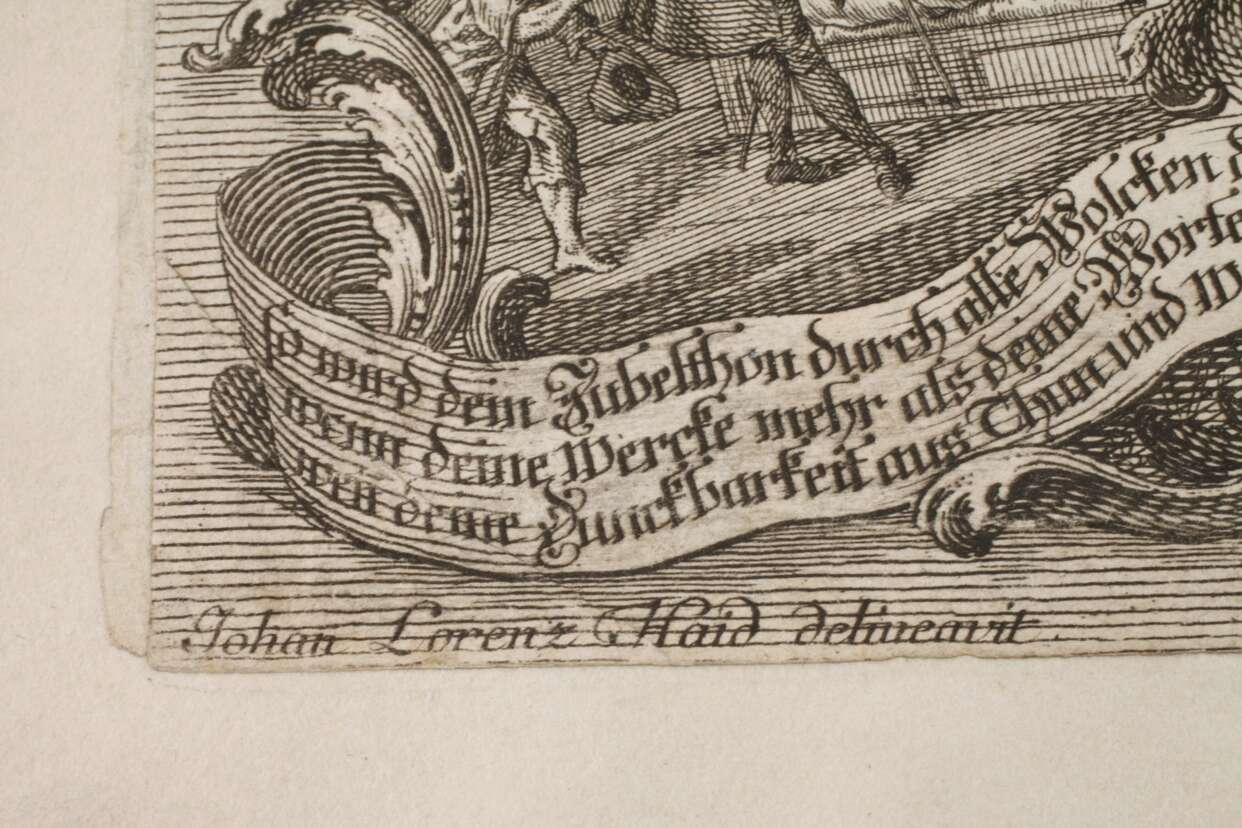 so wird dein Jubelthon durch alle Wolcken
wenn deine Wercke mehr als deine Worte
deine Danckbarkeit aus Thun und
Johan Lorenz Haid delineavit